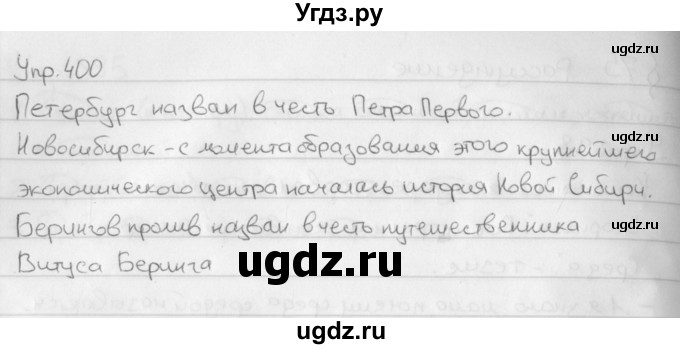 Угдз.ру
ugdz.ru
Упр. 400
ugdz.ru
Петербург назван в честь Петра Первого.
ugdz.ru
Новосибирск - с момента образования этого крупнейшего
экономического центра началась история Новой Сибири.
ugdz.ru
Берингов пролив назван в честь путешественника
Витуса Беринга
ugdz.ru
ugdz.ru
ugdz.ru